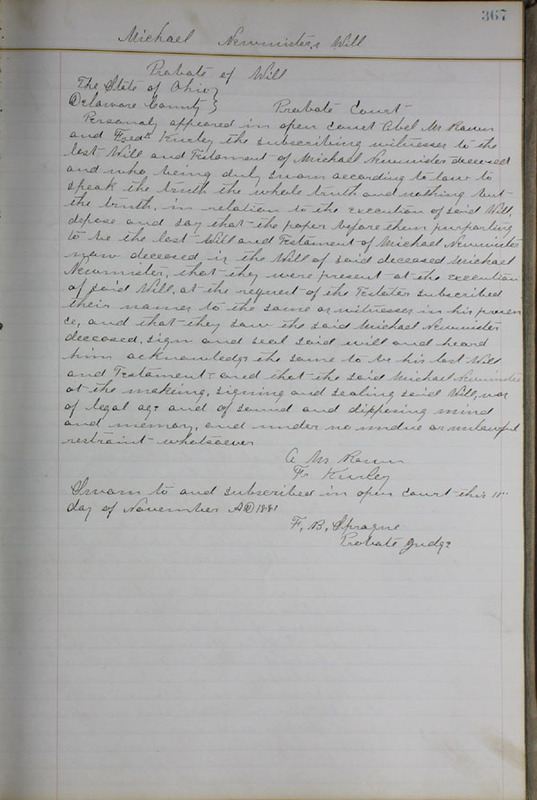 367
Michael Newmisters Will
Probate of Will
The State of Ohio }
Delaware County } Probate Court
Personaly appeared in open Court Abel
and Fredk. the subscribing witnesses to the
last Will and Testament of Michael Newmister deceased
and who being duly sworn according to law to
speak the truth the whole truth and nothing but
the truth, in relation to the execution of said Will,
depose and say that the paper before them purporting
to be the last Will and Testament of Michael Newmister
now deceased is the Will of said deceased Michael
Newmister, that they were present at the execution
of said Will, at the request of the Testator subscribed
their names to the same as witnesses in his presen
ce, and that they saw the said Michael Newmister
deceased, sign and seal said will and heard
him acknowledge the same to be his last Will
and Testament and that the said Michael Newmister
at the making, signing and sealing said Will, was
of legal age and of sound and disposing mind
and memory, and under no undue or unlawful
restraint whatsoever
A
Fr.
Sworn to and subscribed in open Court this 11"
day of November AD 1881
F. B. Sprague
Probate Judge